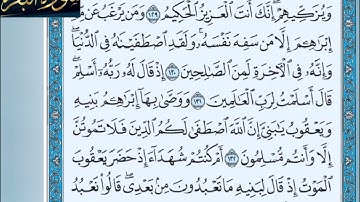 وَيُزَكِّيهِمْ ۚ إِنَّكَ أَنتَ ٱلْعَزِيزُ ٱلْحَكِيمُ ١٢٩ وَمَن يَرْغَبُ عَن مِّلَّةِ
إِبْرَٰهِـۧمَ إِلَّا مَن سَفِهَ نَفْسَهُۥ ۚ وَلَقَدِ ٱصْطَفَيْنَٰهُ فِى ٱلدُّنْيَا ۖ
وَإِنَّهُۥ فِى ٱلْـَٔاخِرَةِ لَمِنَ ٱلصَّٰلِحِينَ ١٣٠ إِذْ قَالَ لَهُۥ رَبُّهُۥٓ أَسْلِمْ ۖ
قَالَ أَسْلَمْتُ لِرَبِّ ٱلْعَٰلَمِينَ ١٣١ وَوَصَّىٰ بِهَآ إِبْرَٰهِـۧمُ بَنِيهِ
وَيَعْقُوبُ يَٰبَنِىَّ إِنَّ ٱللَّهَ ٱصْطَفَىٰ لَكُمُ ٱلدِّينَ فَلَا تَمُوتُنَّ
إِلَّا وَأَنتُم مُّسْلِمُونَ ١٣٢ أَمْ كُنتُمْ شُهَدَآءَ إِذْ حَضَرَ يَعْقُوبَ
ٱلْمَوْتُ إِذْ قَالَ لِبَنِيهِ مَا تَعْبُدُونَ مِنۢ بَعْدِى ۖ قَالُوا۟ نَعْبُدُ